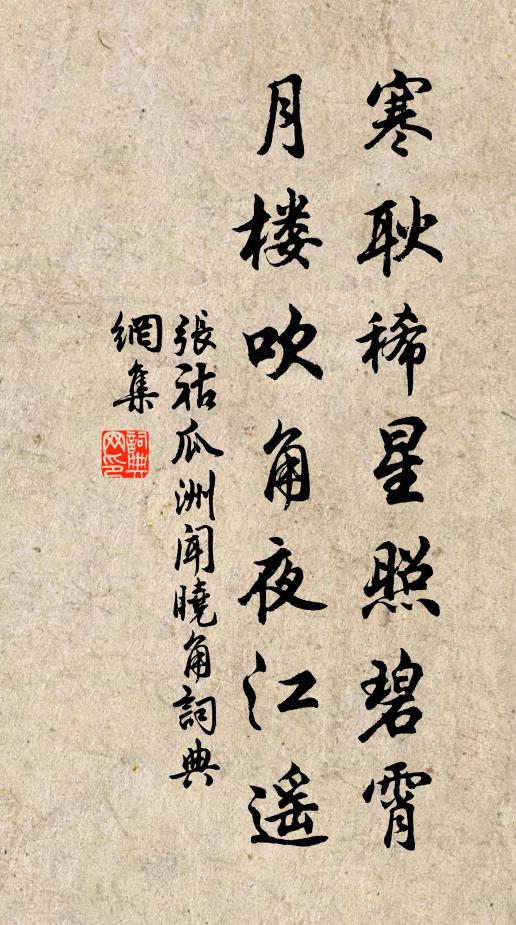 寒耿稀星照碧霄
月楼吹角夜江遥
張祜瓜洲聞曉角詞典
網集
詞典网印